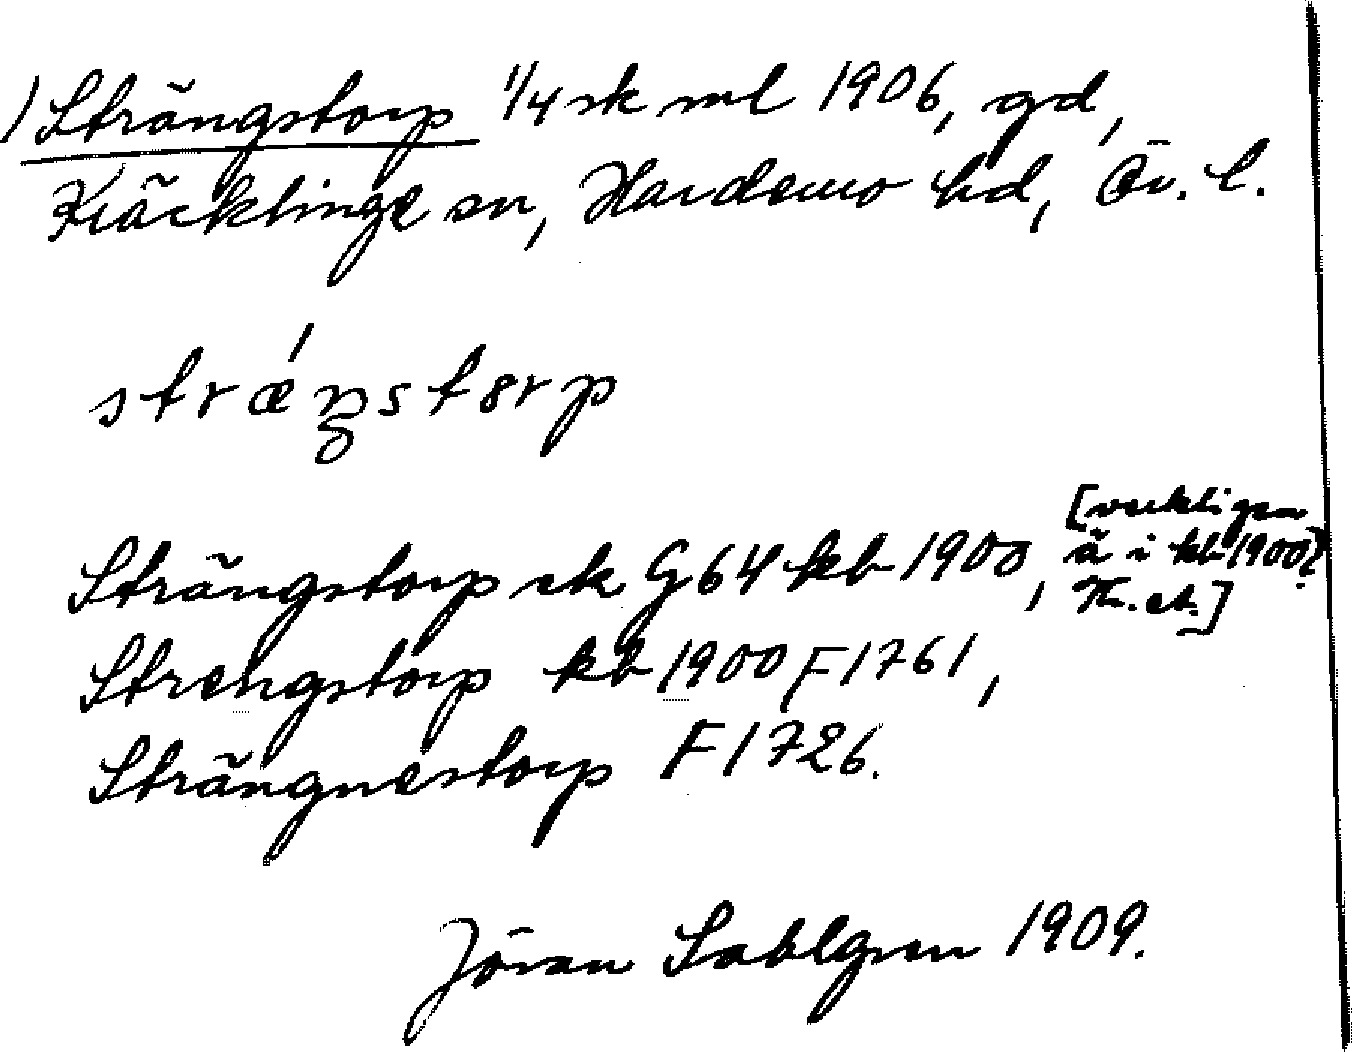 1) Strängstorp 1/4 sk ml 1906, gd,
Kräcklinge sn, Hardemo hd, Ör. l.
strǽŋstorp
Strängstorp sk G64 kb 1900, [verkligen
ä i kb 1900?
Strengstorp kb 1900 F1761,
Strängnestorp F1726.
Jöran Sahlgren 1909.